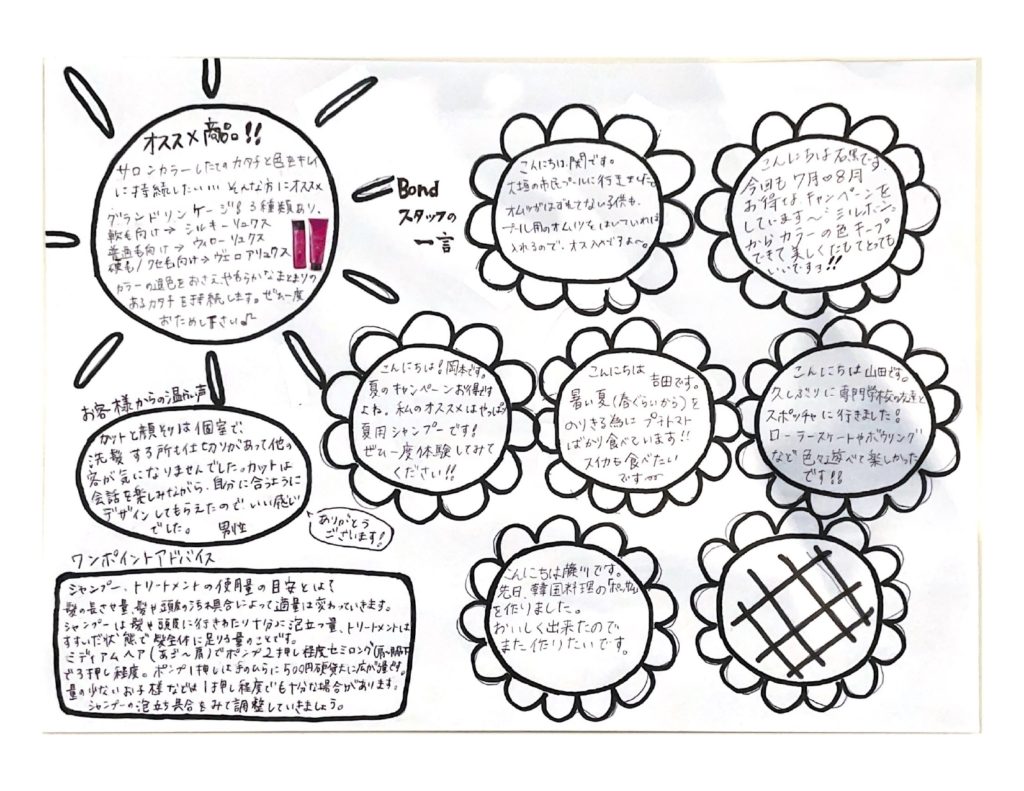 オススメ商品!!
サロンカラーしたてのカタチと色をキレイ
に持続したいいい そんな方にオススメ
グランドリンケージ 3種類あり。
軟毛向け→ シルキーリュクス
普通毛向け→ ウィローリュクス
硬毛/クセ毛向け→ヴェロアリュクス
カラーの退色をおさえ、やわらかなまとまりの
あるカタチを持続します。ぜひ一度
おためし下さい♪
Bond
スタッフの
一言
こんにちは、関です。
大垣の市民プールに行きました。
オムツがはずれてない子供も、
プール用のオムツをはいていれば
入れるので、オススメですよ〜。
こんにちは石黒です。
今回も7月・8月
お得なキャンペーンを
しています〜ミルボン
からカラーの色キープ
できて美しくたもてとっても
いいですヨ!!
こんにちは!岡本です。
夏のキャンペーンお得です
よね。私のオススメはやっぱり
夏用シャンプーです!
ぜひ一度体験してみて
ください!!
こんにちは
吉田です。
暑い夏(春ぐらいから)を
のりきる為にプチトマト
ばかり食べています!!
スイカも食べたい
です
こんにちは山田です。
久しぶりに専門学校の友達と
スポッチャに行きました!
ローラースケートやボウリング
など色々遊べて楽しかった
です!!
お客様からの温かい声
カットと顔そりは個室で、
洗髪する所も仕切りがあって他の
客が気になりませんでした。カットは
会話を楽しみながら、自分に合うように
デザインしてもらえたので、いい感じ
でした。 男性
ありがとう
ございます!
こんにちは藤川です。
先日、韓国料理の
を作りました。
おいしく出来たので
また作りたいです。
ワンポイントアドバイス
シャンプー、トリートメントの使用量の目安とは?
髪の長さや量、髪や頭皮の汚れ具合によって適量は変わっていきます。
シャンプーは髪や頭皮に行きわたり十分に泡立つ量、トリートメントは
すすいだ状態で髪全体に足りる量のことです。
ミディアムヘア(あご〜肩)でポンプ2押し程度セミロング(肩〜胸下)
で3押し程度。ポンプ1押しは手のひらに500円硬貨大に広がる量です。
量の少ないお子様などは1押し程度でも十分な場合があります。
シャンプーの泡立ち具合をみて調整していきましょう。